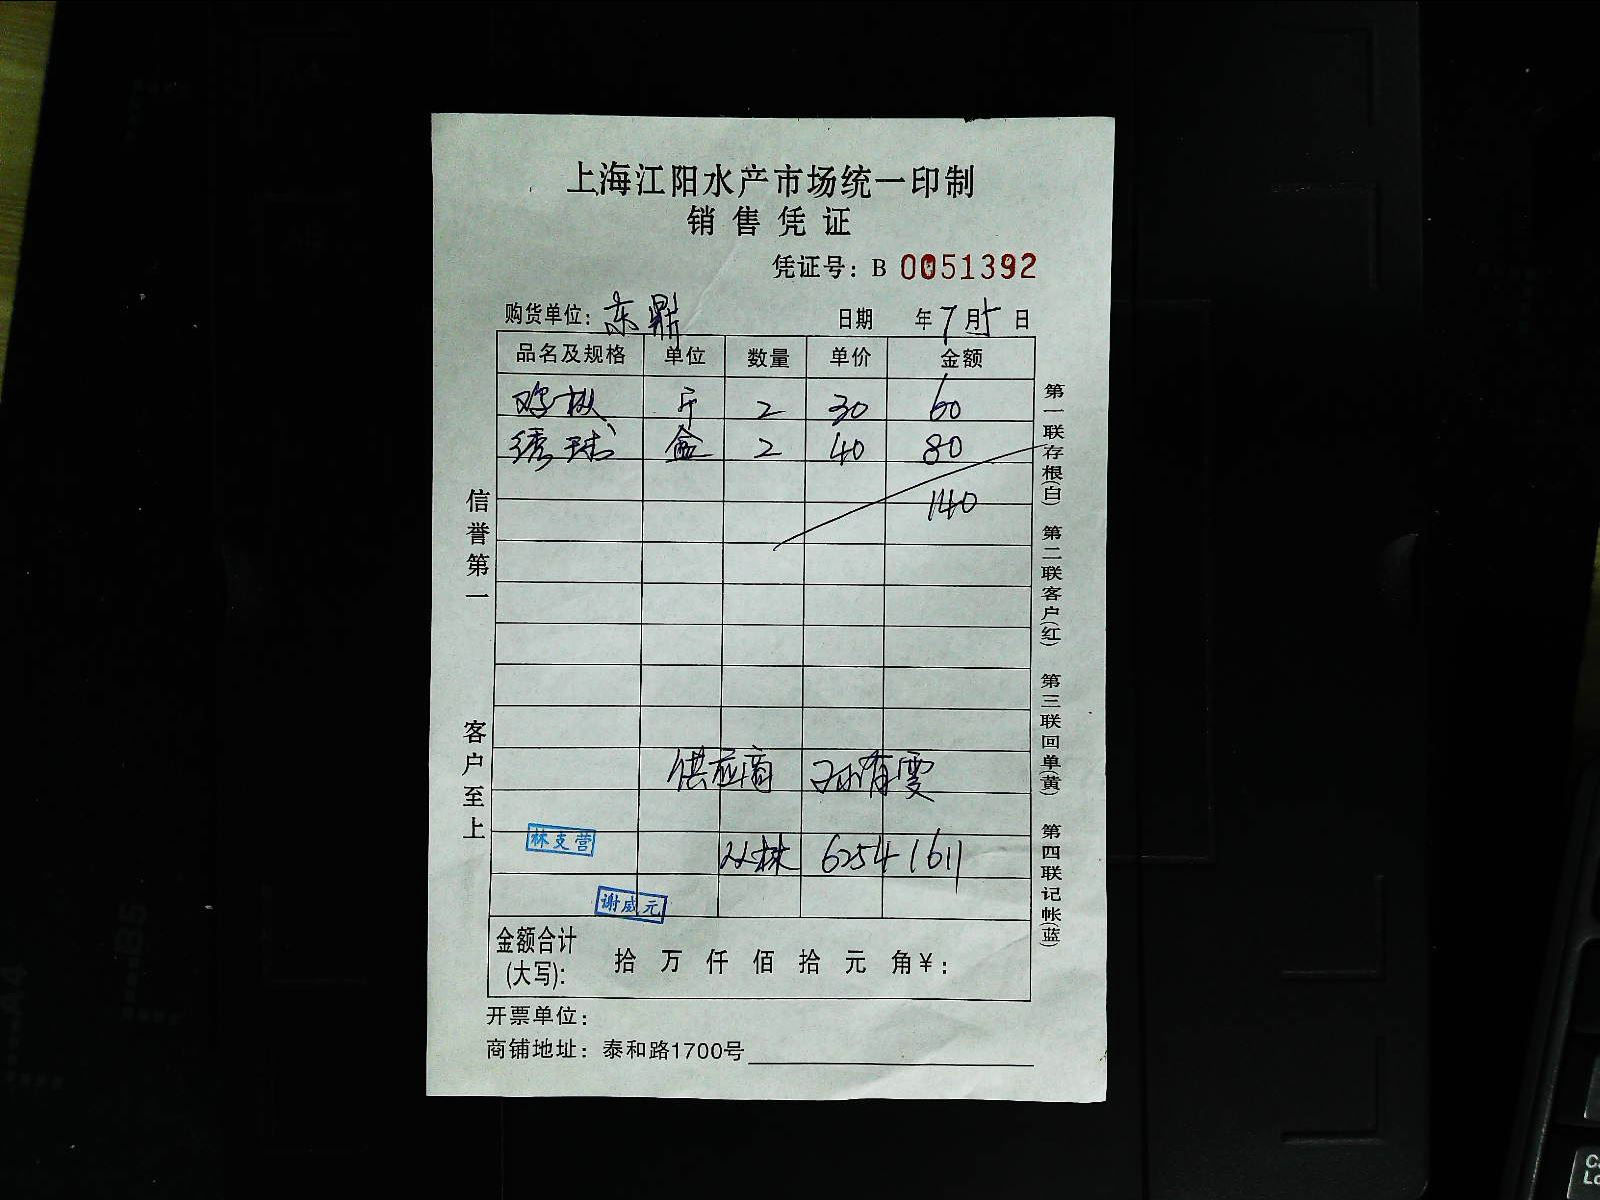 上海江阳水产市场统一印制
销售凭证
凭证号：B 0051392
购货单位：东鼎 日期 年7月5日
品名及规格 单位 数量 单价 金额
鸡枞 斤 2 30 60
绣球 盒 2 40 80
140
供应商 孙有雯
双林 62541611
林支营
谢威元
金额合计(大写)： 拾 万 仟 佰 拾 元 角￥：
开票单位：
商铺地址：泰和路1700号
信誉第一 客户至上
第一联存根(白) 第二联客户(红) 第三联回单(黄) 第四联记帐(蓝)
A4
B5